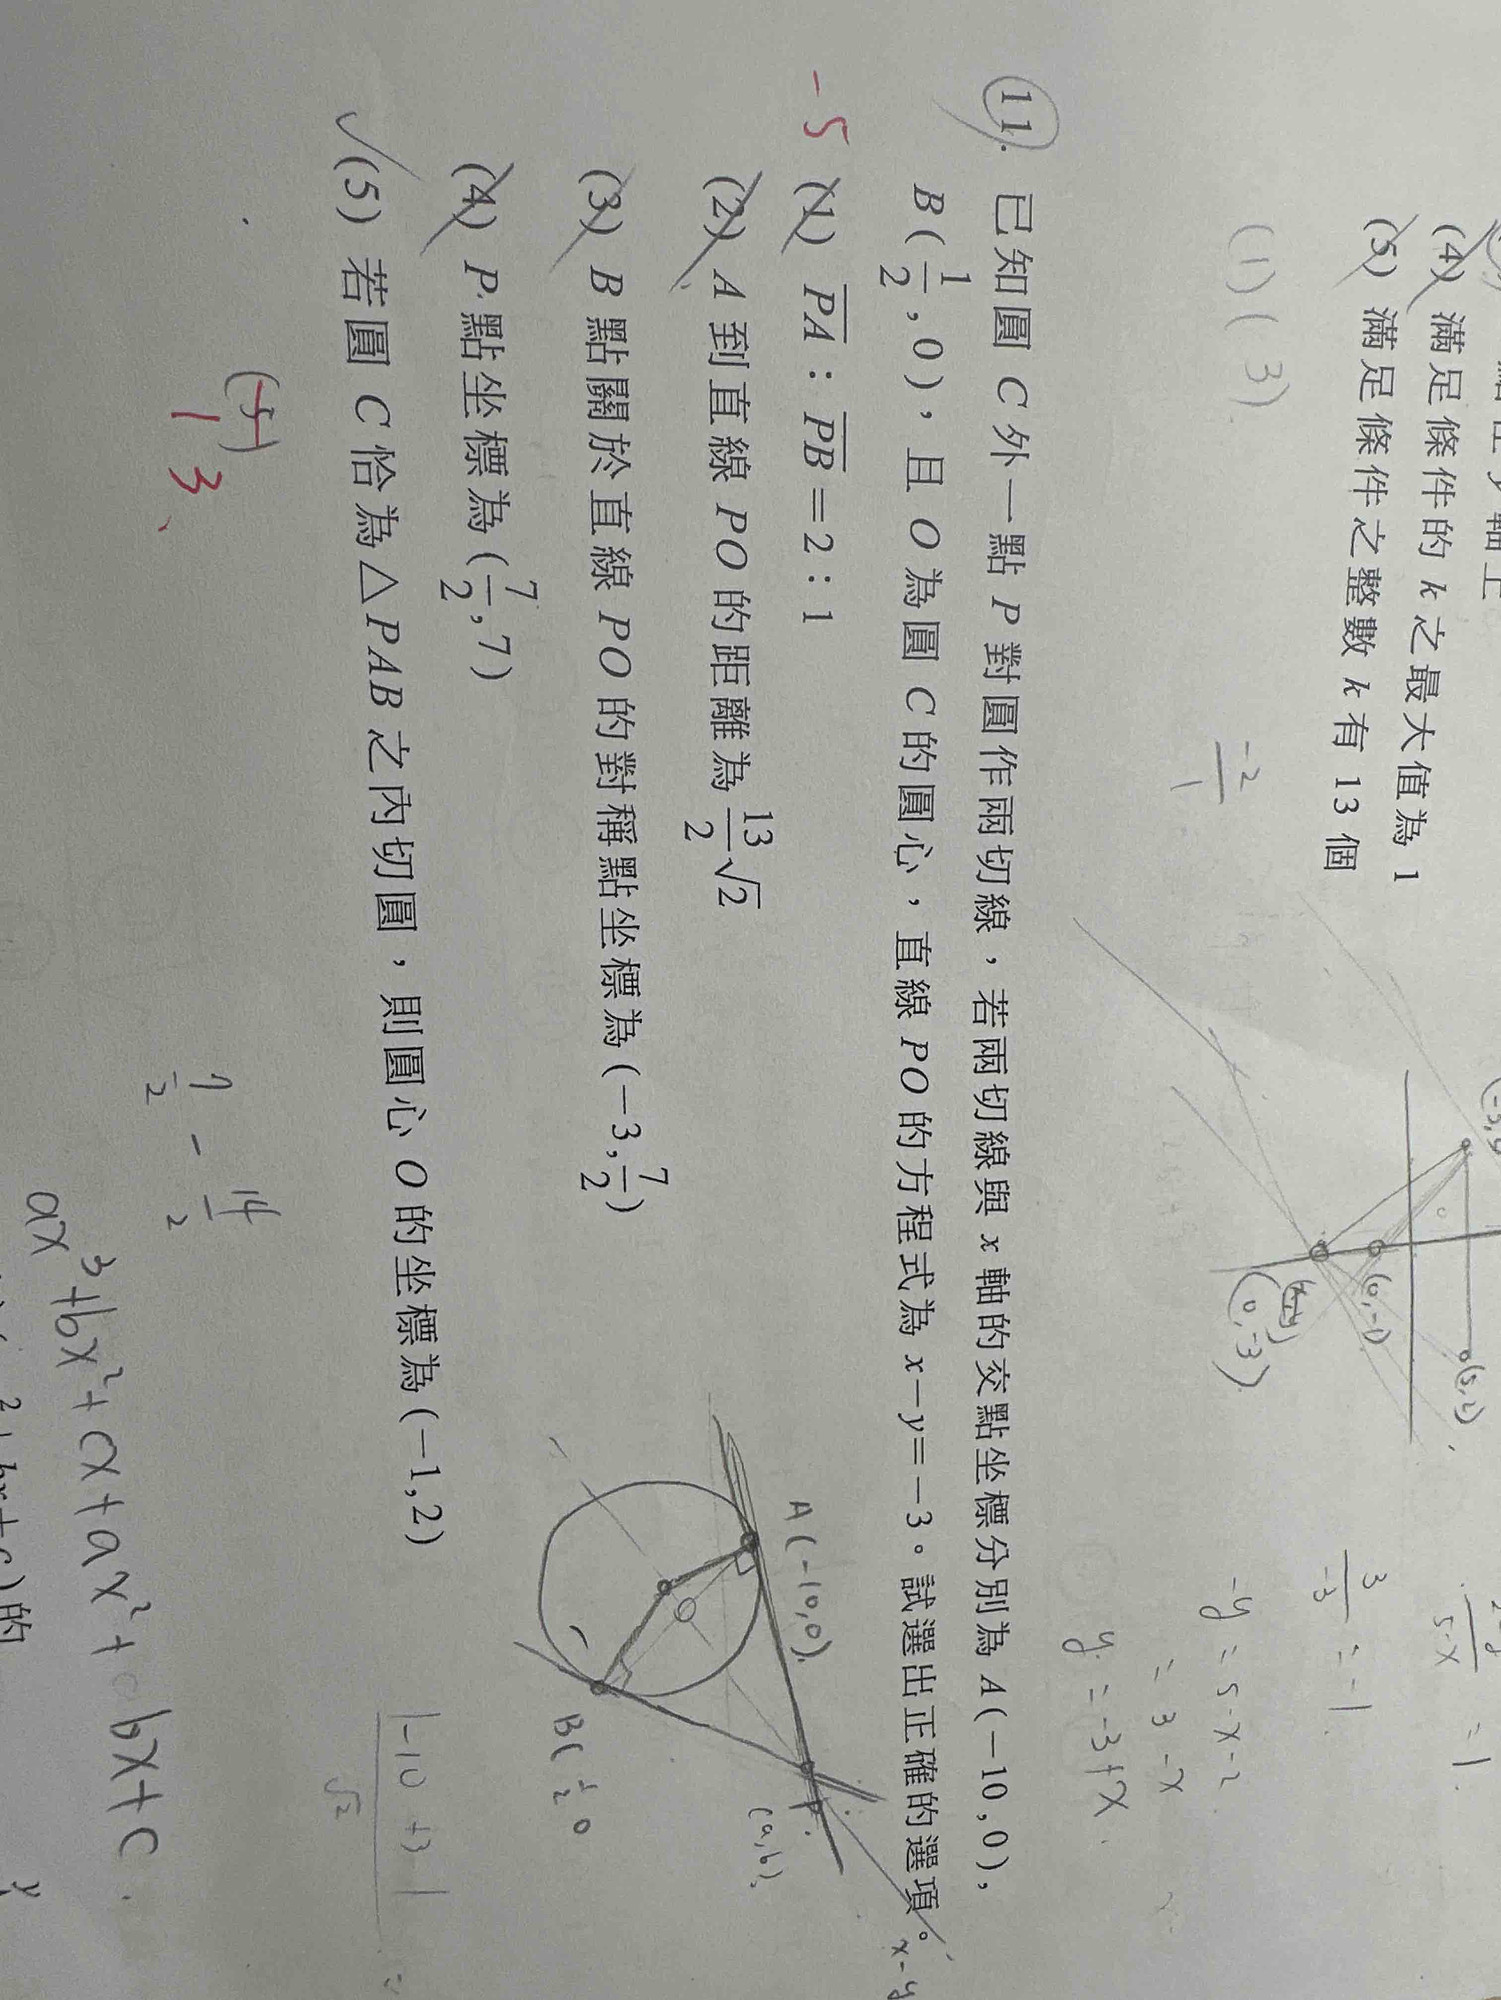 (4) 滿足條件的 k 之最大值為 1
(5) 滿足條件之整數 k 有 13 個
(1)(3)
-2/1
(0,-1)
(0,-3)
(5,2)
3/-3 = -1
= 1
-y = 5-x-2
= 3-x
y = -3+x
11. 已知圓 C 外一點 P 對圓作兩切線，若兩切線與 x 軸的交點坐標分別為 A(−10,0)，
B(1/2,0)，且 O 為圓 C 的圓心，直線 PO 的方程式為 x−y=−3。試選出正確的選項。
-5
(1) PA：PB=2：1
(2) A 到直線 PO 的距離為 13/2√2
(3) B 點關於直線 PO 的對稱點坐標為(−3,7/2)
(4) P 點坐標為(7/2,7)
(5) 若圓 C 恰為△PAB 之內切圓，則圓心 O 的坐標為(−1,2)
x-y
A(-10,0)
P
(a,b)
B(1/2 0
(5)
1 3、
7/2 - 14/2
|-10 +3|/√2 =
ax³+bx²+cx+ax²+bx+c